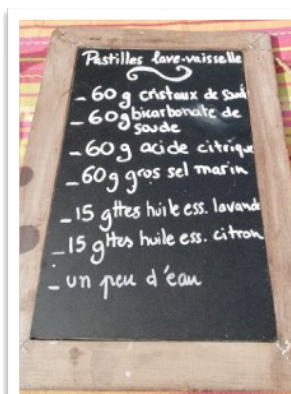 Pastilles lave-vaisselle
- 60 g cristaux de soude
- 60g bicarbonate de
soude
- 60 g acide citrique
- 60g gros sel marin
- 15 gttes huile ess. lavande
- 15 gttes huile ess. citron
- un peu d'eau